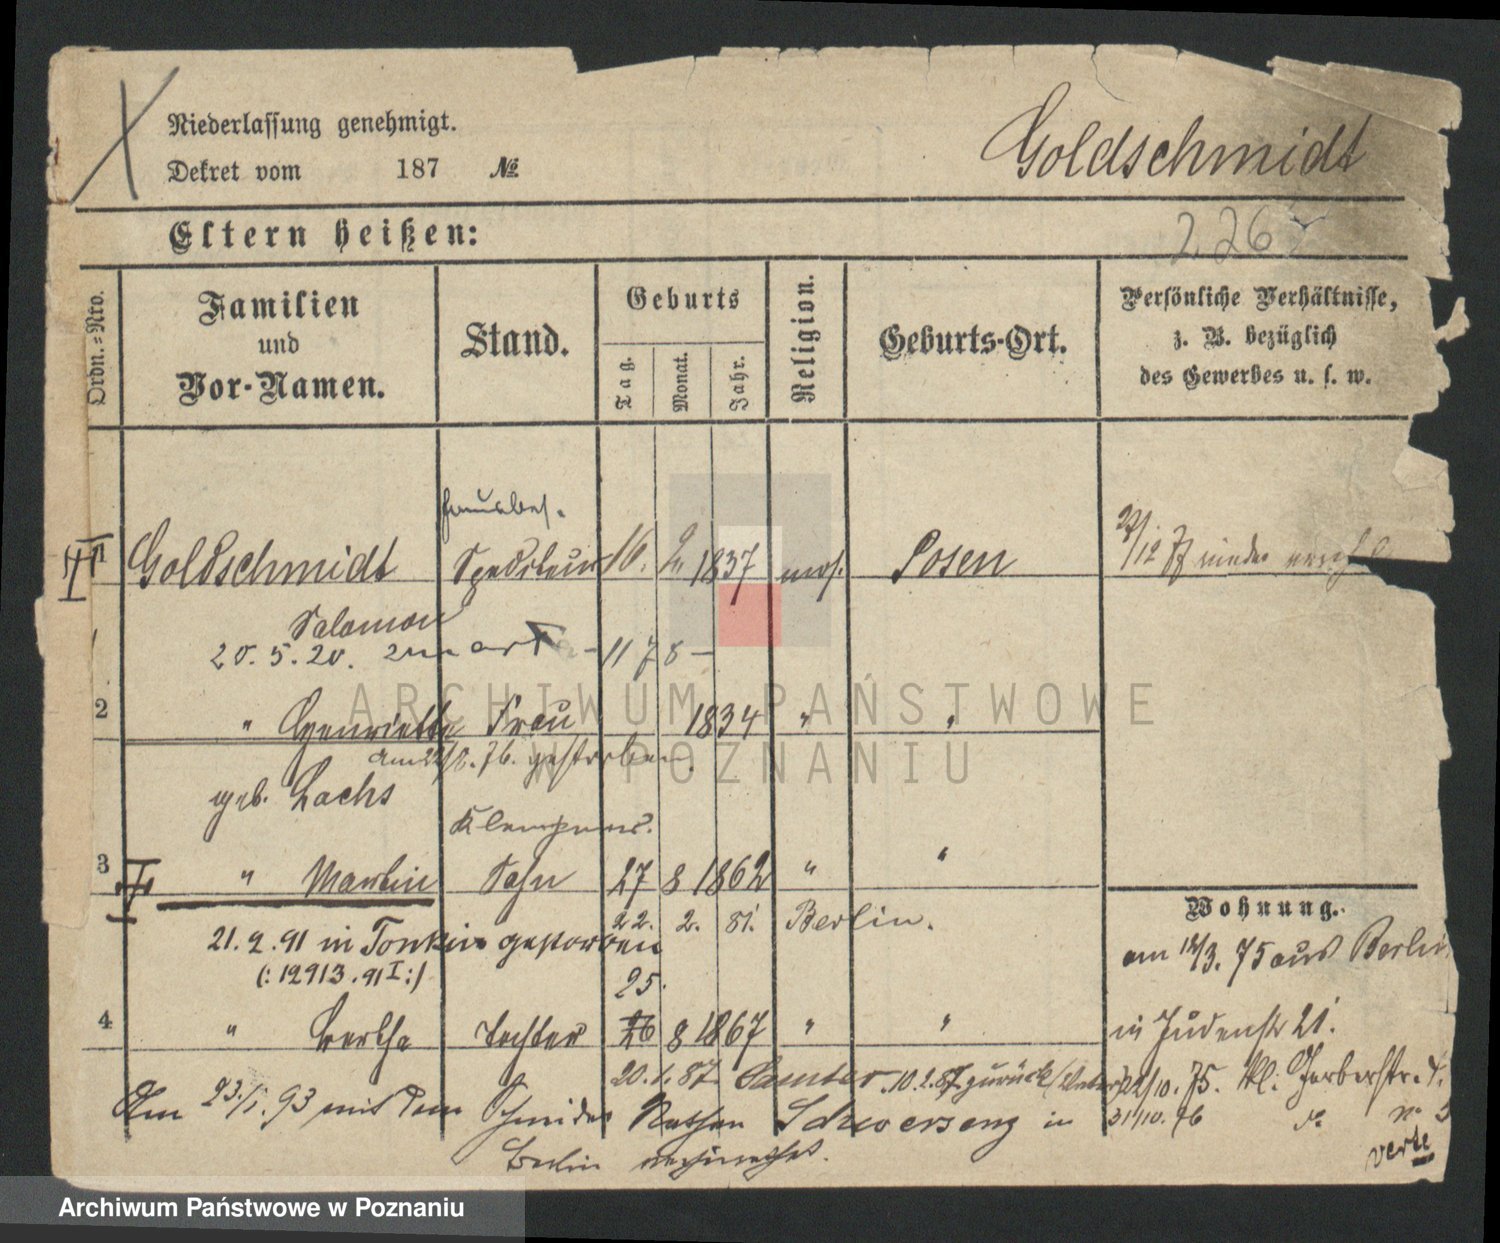 Niederlassung genehmigt.
Dekret vom 187 №
Goldschmidt
Eltern heißen:
2267
Ordn.=Nro.
Familien
und
Vor-Namen.
Stand.
Geburts
Tag.
Monat.
Jahr.
Religion.
Geburts-Ort.
Persönliche Verhältnisse,
z. B. bezüglich
des Gewerbes u. s. w.
1 Goldschmidt Spediteur 16. 2. 1837 mos. Posen
Salomon
20. 5. 20. 1178
2 " Henriette Frau 1834 " "
am 22/8. 76. gestorben.
geb. Lachs
Klempner.
3 " Martin Sohn 27 8 1862 " "
22. 2. 81. Berlin.
21.2.91 in Tonkin gestorben
(: 12913.91 I :)
25.
4 " Bertha Tochter 26 8 1867 " "
Wohnung.
am 12/3. 75 aus Berlin
in Judenstr 21.
20.1.87. Samter. 10.2.87. zurück
22/10. 75. kl. Gerberstr.
31/10. 76
Am 23./1. 93 mit dem Schneider Nathan Schwersenz in
Berlin verheirathet.
verte
ARCHIWUM PAŃSTWOWE
W POZNANIU
Archiwum Państwowe w Poznaniu